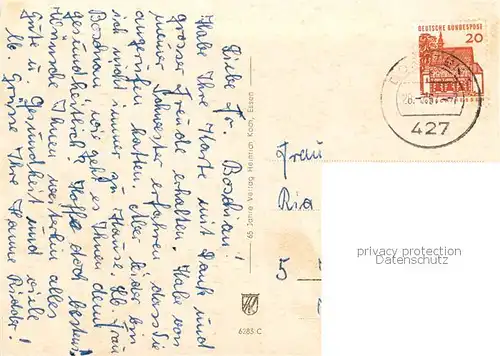 Liebe Fr. Boschian!
Habe Ihre Karte mit Dank und
grosser Freude erhalten. Habe von
meiner Schwester erfahren dass Sie
angerufen hatten. Aber leider bin
ich nicht immer zu Hause. Lb. Frau
Boschian wie geht es Ihnen denn
gesundheitlich? Hoffe doch bestens!
Wünsche Ihnen weiterhin alles
Gute u. Gesundheit und viele
lb. Grüsse Ihre Hanne Ridder!
65 Jahre Verlag Heinrich Koch, Essen
6283 C
DEUTSCHE BUNDESPOST
20
427
Frau
Ria
5
privacy protection
Datenschutz